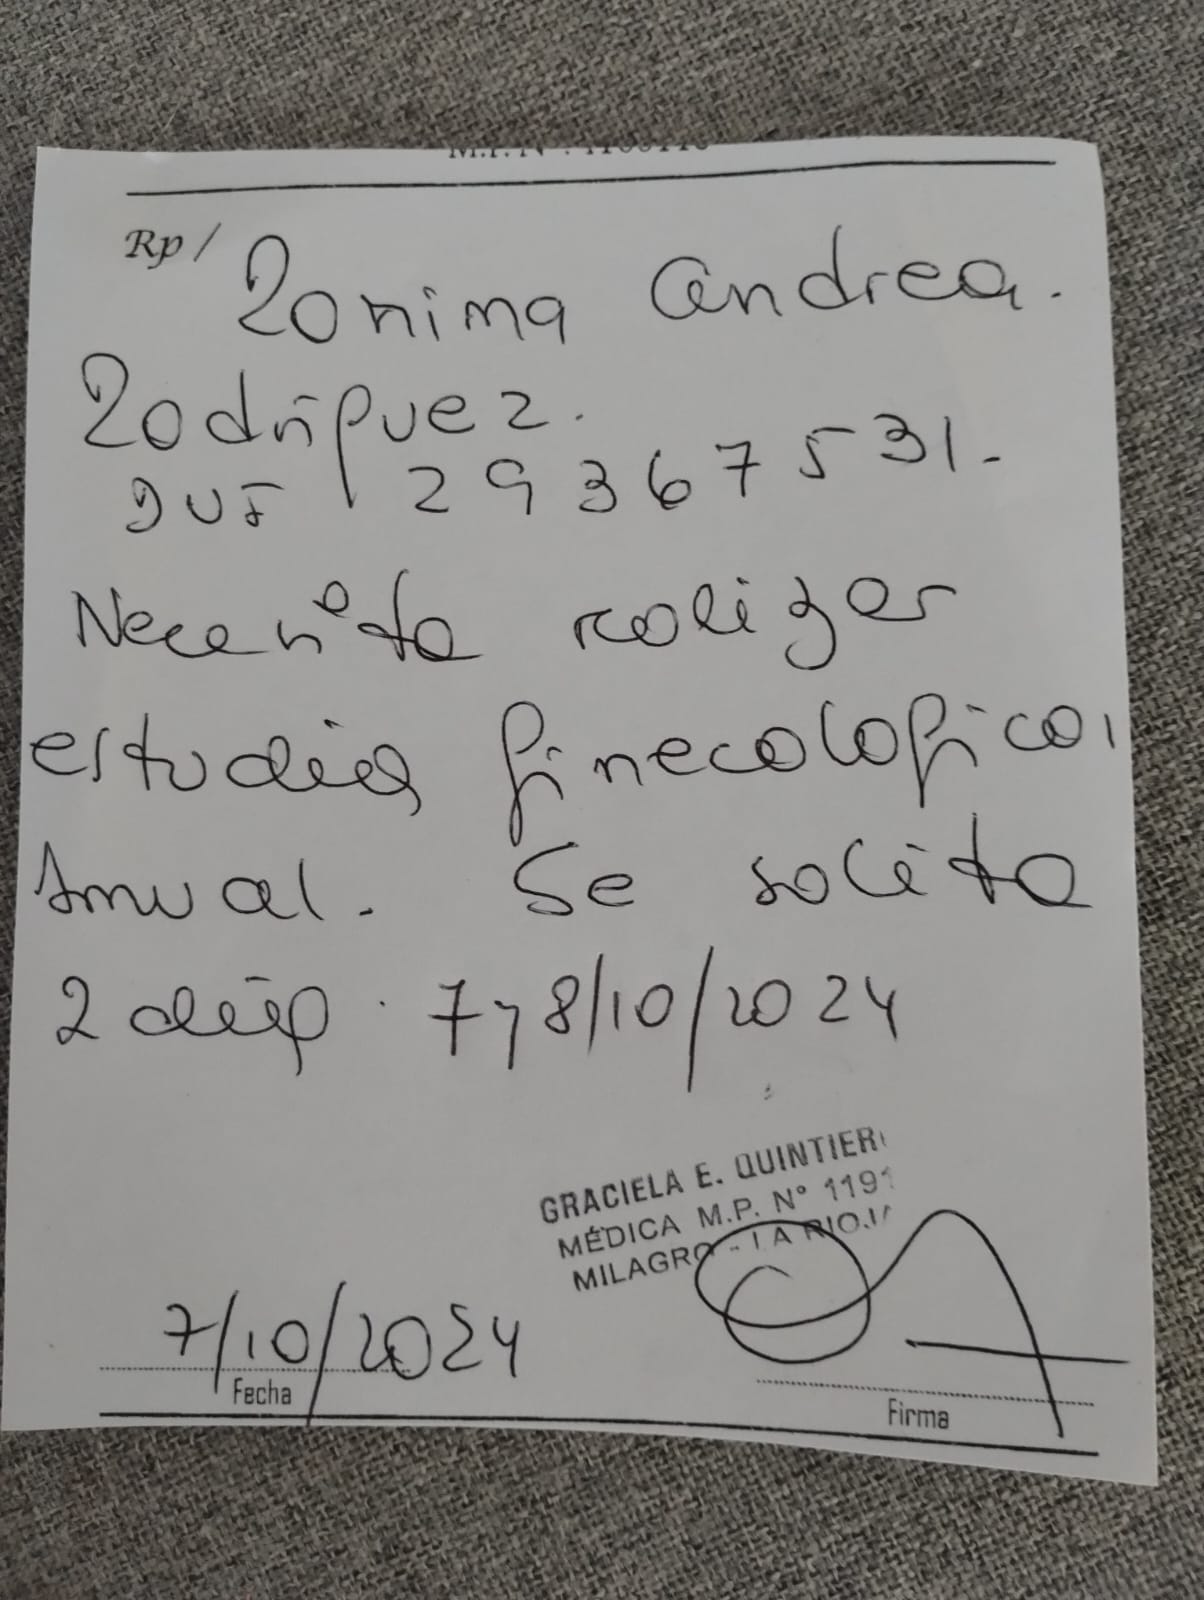 Rp/ Romina Andrea.
Rodríguez.
DNI 29367531.
Necesita realizar
estudios ginecologicos
Anual. Se solita
2 días. 7 y 8/10/2024
GRACIELA E. QUINTIERI
MÉDICA M.P. Nº 1191
MILAGRO - LA RIOJA
7/10/2024
Fecha
Firma